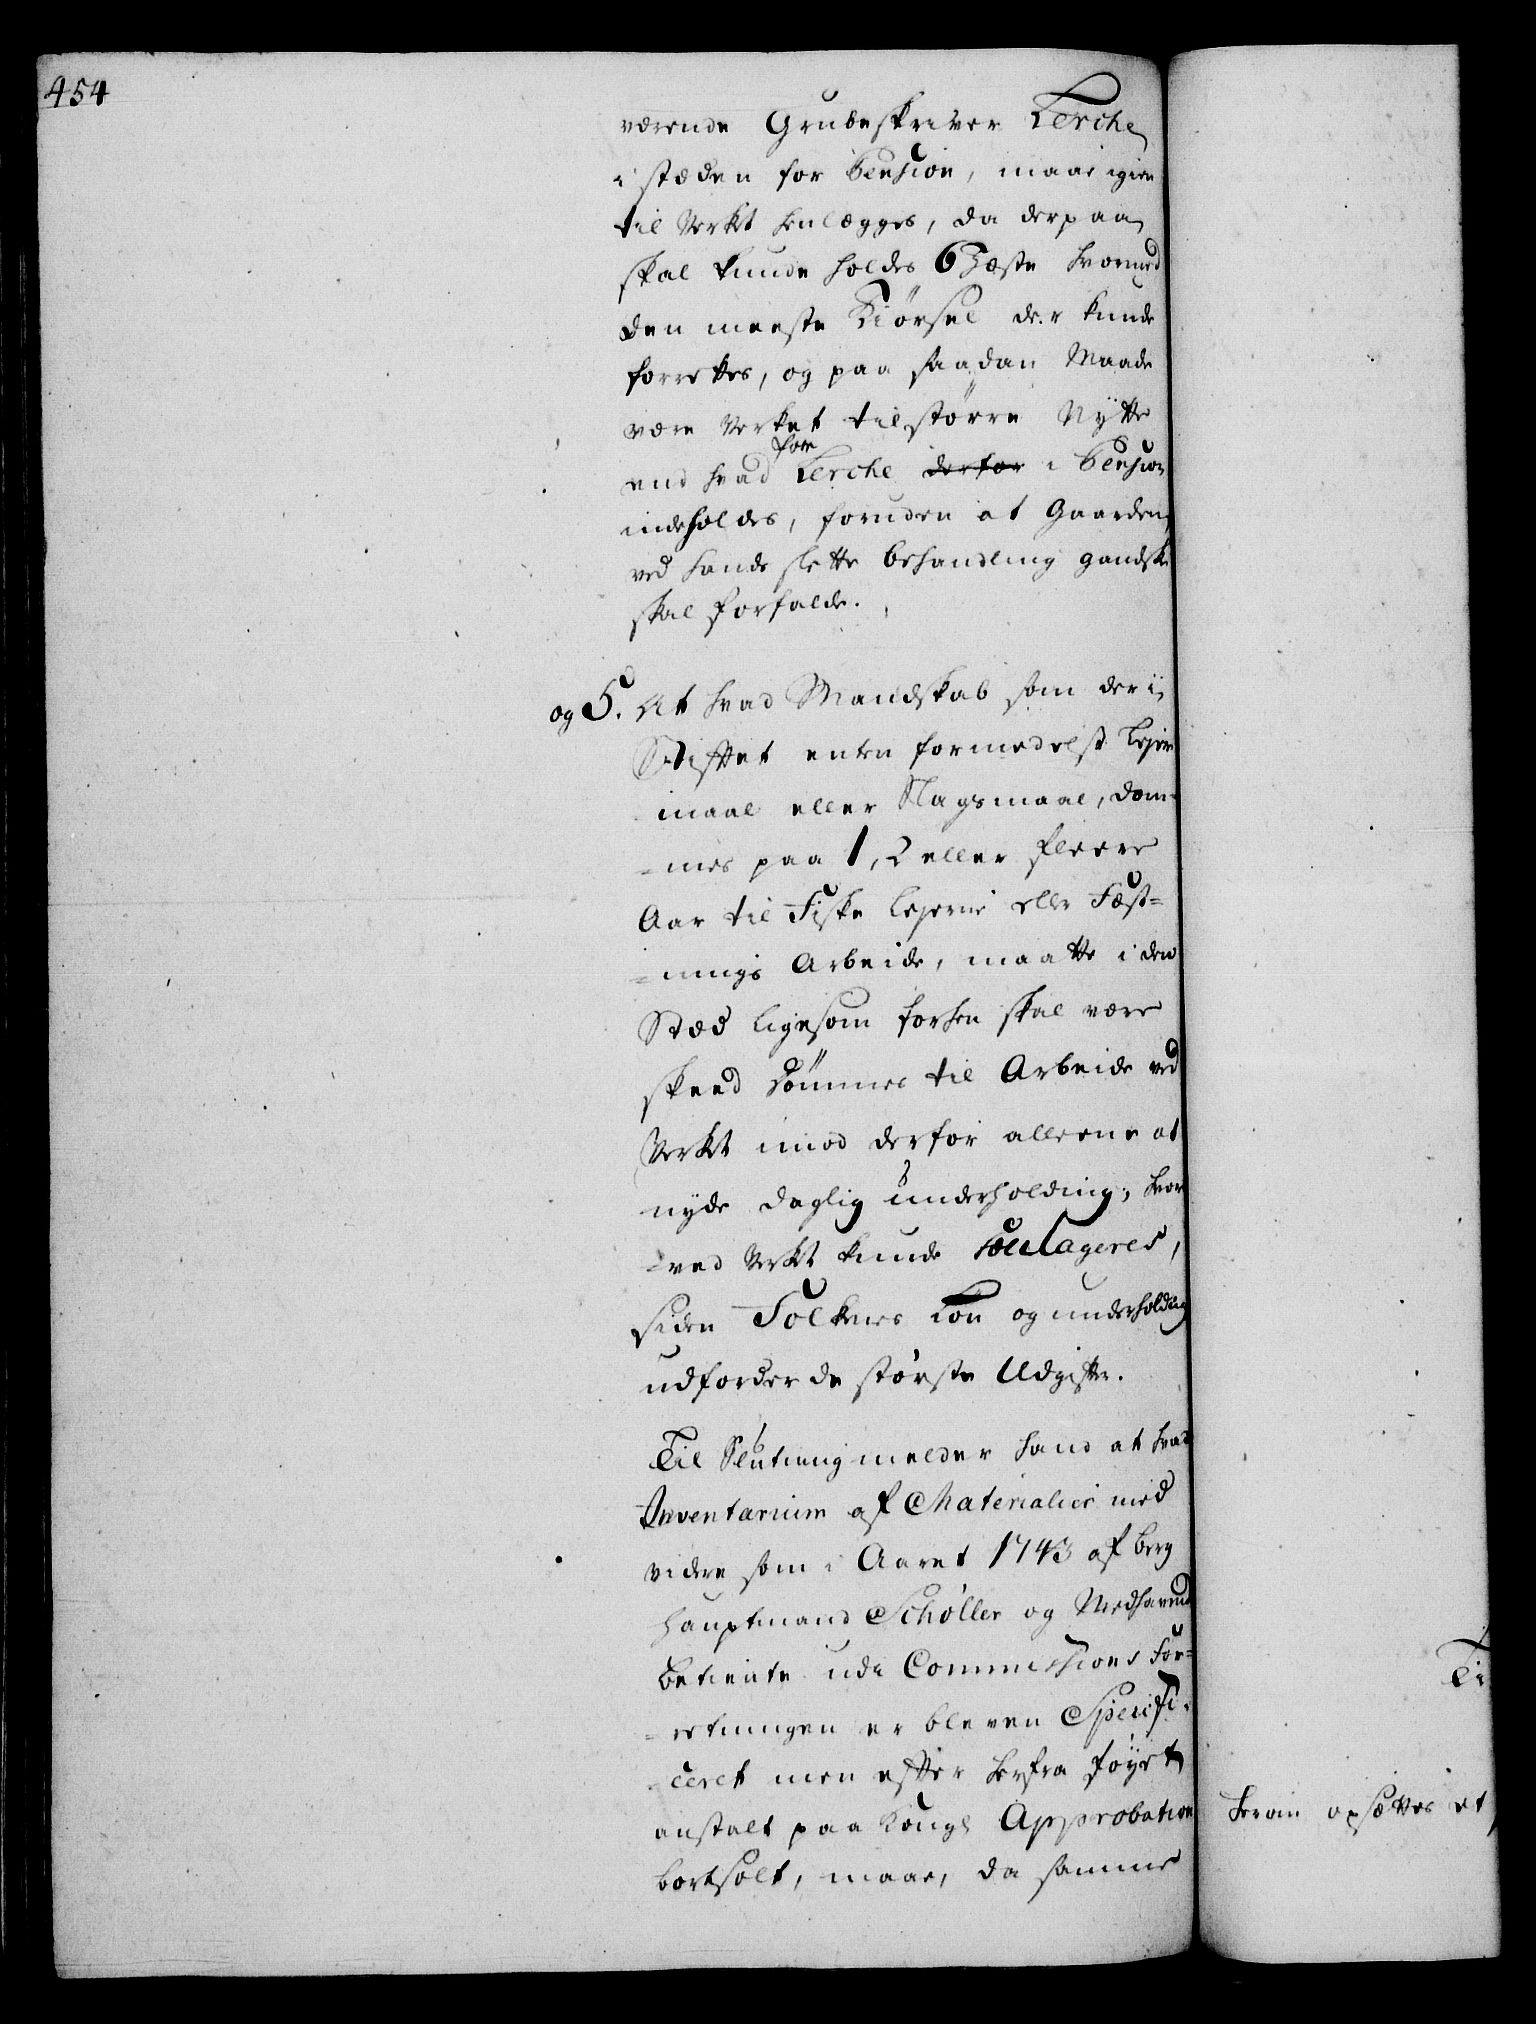 454
værende Grubeskriver Lerche
i stæden for Pension, maae igien
til Verket henlægges, da derpaa
skal kunde holdes 6 Hæste hvormed
den meeste Kiörsel der kunde
forrettes, og paa saadan Maade
være Verket til större Nytte
end hvad for Lerche derfor i Pension
indeholdes, foruden at Gaarden
ved hands slette behandling gandske
skal forfalde.
og 5. At hvad Mandskab som der i
Stiftet enten formedelst Lejer
maal eller Slagsmaal, döm-
-mes paa 1, 2 eller fleere
Aar til Fiske Lejerne eller Fæst=
=nings Arbeide, maatte i den
Stæd ligesom forhen skal være
skeed dömmes til Arbeide ved
Verket imod derfor alleene at
nyde daglig underholding, hvor
=ved Verket kunde soulageres,
siden Folkenes Lön og underholdning
udfordrer de störste Udgifter.
Til Slutning melder hand at hvad
Inventarium af Materialier med
videre som i Aaret 1743 af Berg
Hauptmand Schöller og Medhavende
Betiente udi Commissions For=
=retningen er bleven Specifi=
=ceret men efter herfra föyet
anstalt paa Kongl Approbation
bortsolt, maae, da samme
Ti
hvorom opsættes et